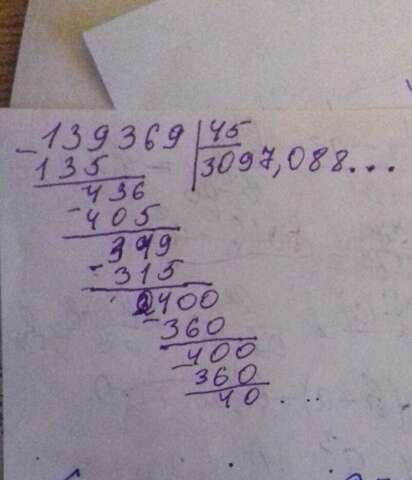 -139369 | 45
135 3097,088...
436
-405
319
-315
400
-360
400
-360
40...